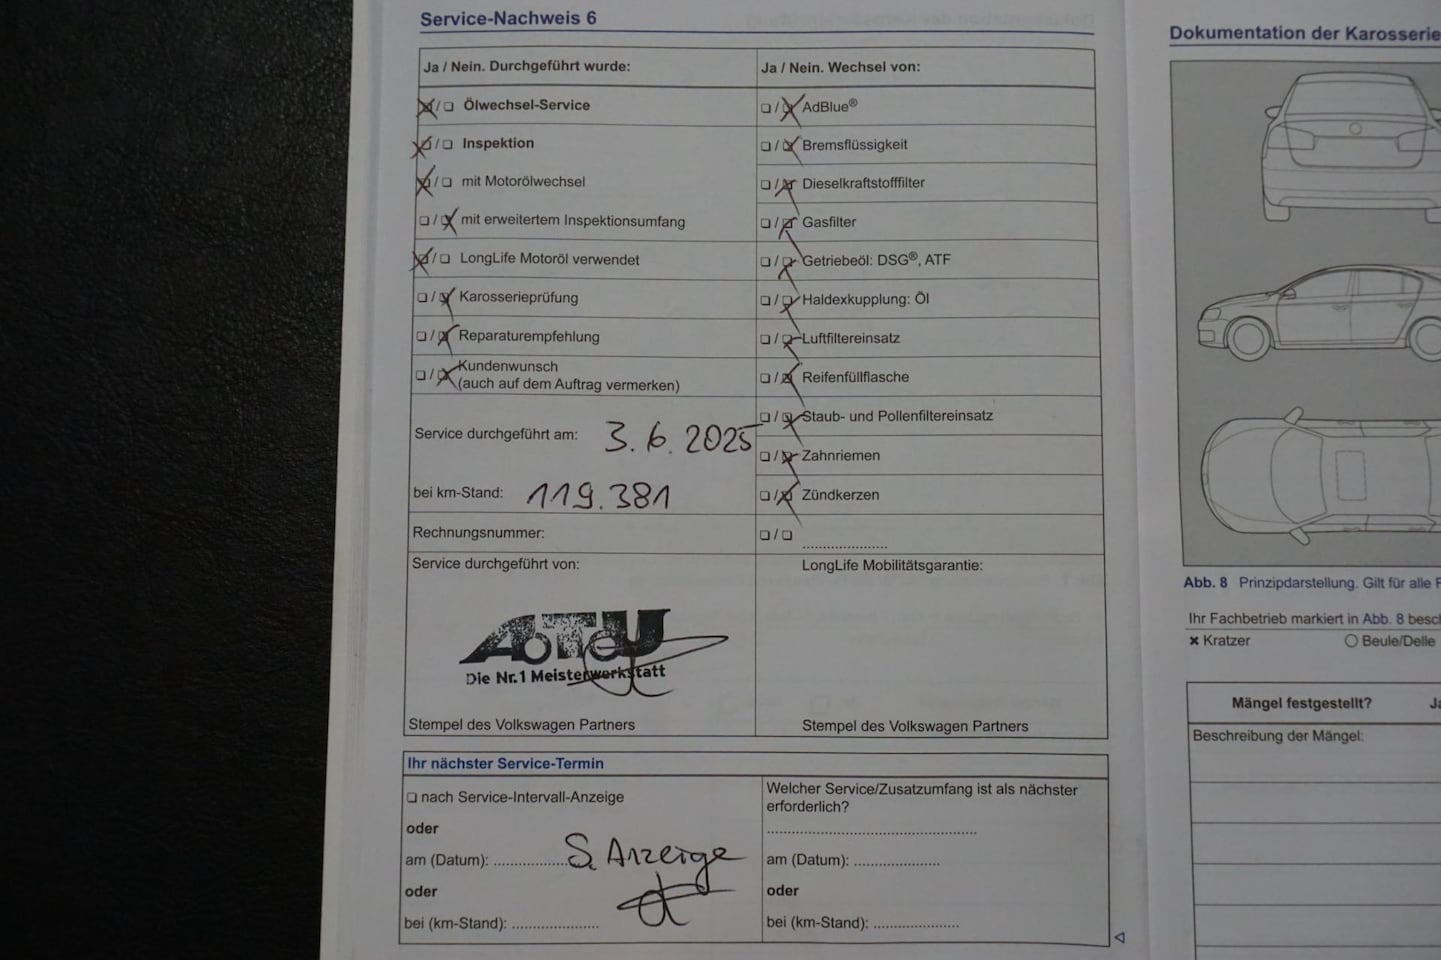 Service-Nachweis 6
Ja / Nein. Durchgeführt wurde:
☒/☐ Ölwechsel-Service
☒/☐ Inspektion
☒/☐ mit Motorölwechsel
☐/☒ mit erweitertem Inspektionsumfang
☒/☐ LongLife Motoröl verwendet
☐/☒ Karosserieprüfung
☐/☒ Reparaturempfehlung
☐/☒ Kundenwunsch
(auch auf dem Auftrag vermerken)
Service durchgeführt am: 3.6.2025
bei km-Stand: 119.381
Rechnungsnummer:
Service durchgeführt von:
AUTEU
Die Nr.1 Meisterwerkstatt
Stempel des Volkswagen Partners
Ja / Nein. Wechsel von:
☐/☒ AdBlue®
☐/☒ Bremsflüssigkeit
☐/☒ Dieselkraftstofffilter
☐/☒ Gasfilter
☐/☒ Getriebeöl: DSG®, ATF
☐/☒ Haldexkupplung: Öl
☐/☒ Luftfiltereinsatz
☐/☒ Reifenfüllflasche
☐/☒ Staub- und Pollenfiltereinsatz
☐/☒ Zahnriemen
☐/☒ Zündkerzen
☐/☐ ....................
LongLife Mobilitätsgarantie:
Stempel des Volkswagen Partners
Ihr nächster Service-Termin
☐ nach Service-Intervall-Anzeige
oder
am (Datum): .................. S. Anzeige
oder
bei (km-Stand): ....................
Welcher Service/Zusatzumfang ist als nächster
erforderlich?
am (Datum): ....................
oder
bei (km-Stand): ....................
Dokumentation der Karosserie
Abb. 8 Prinzipdarstellung. Gilt für alle F
Ihr Fachbetrieb markiert in Abb. 8 besc
× Kratzer ○ Beule/Delle
Mängel festgestellt? Ja
Beschreibung der Mängel: